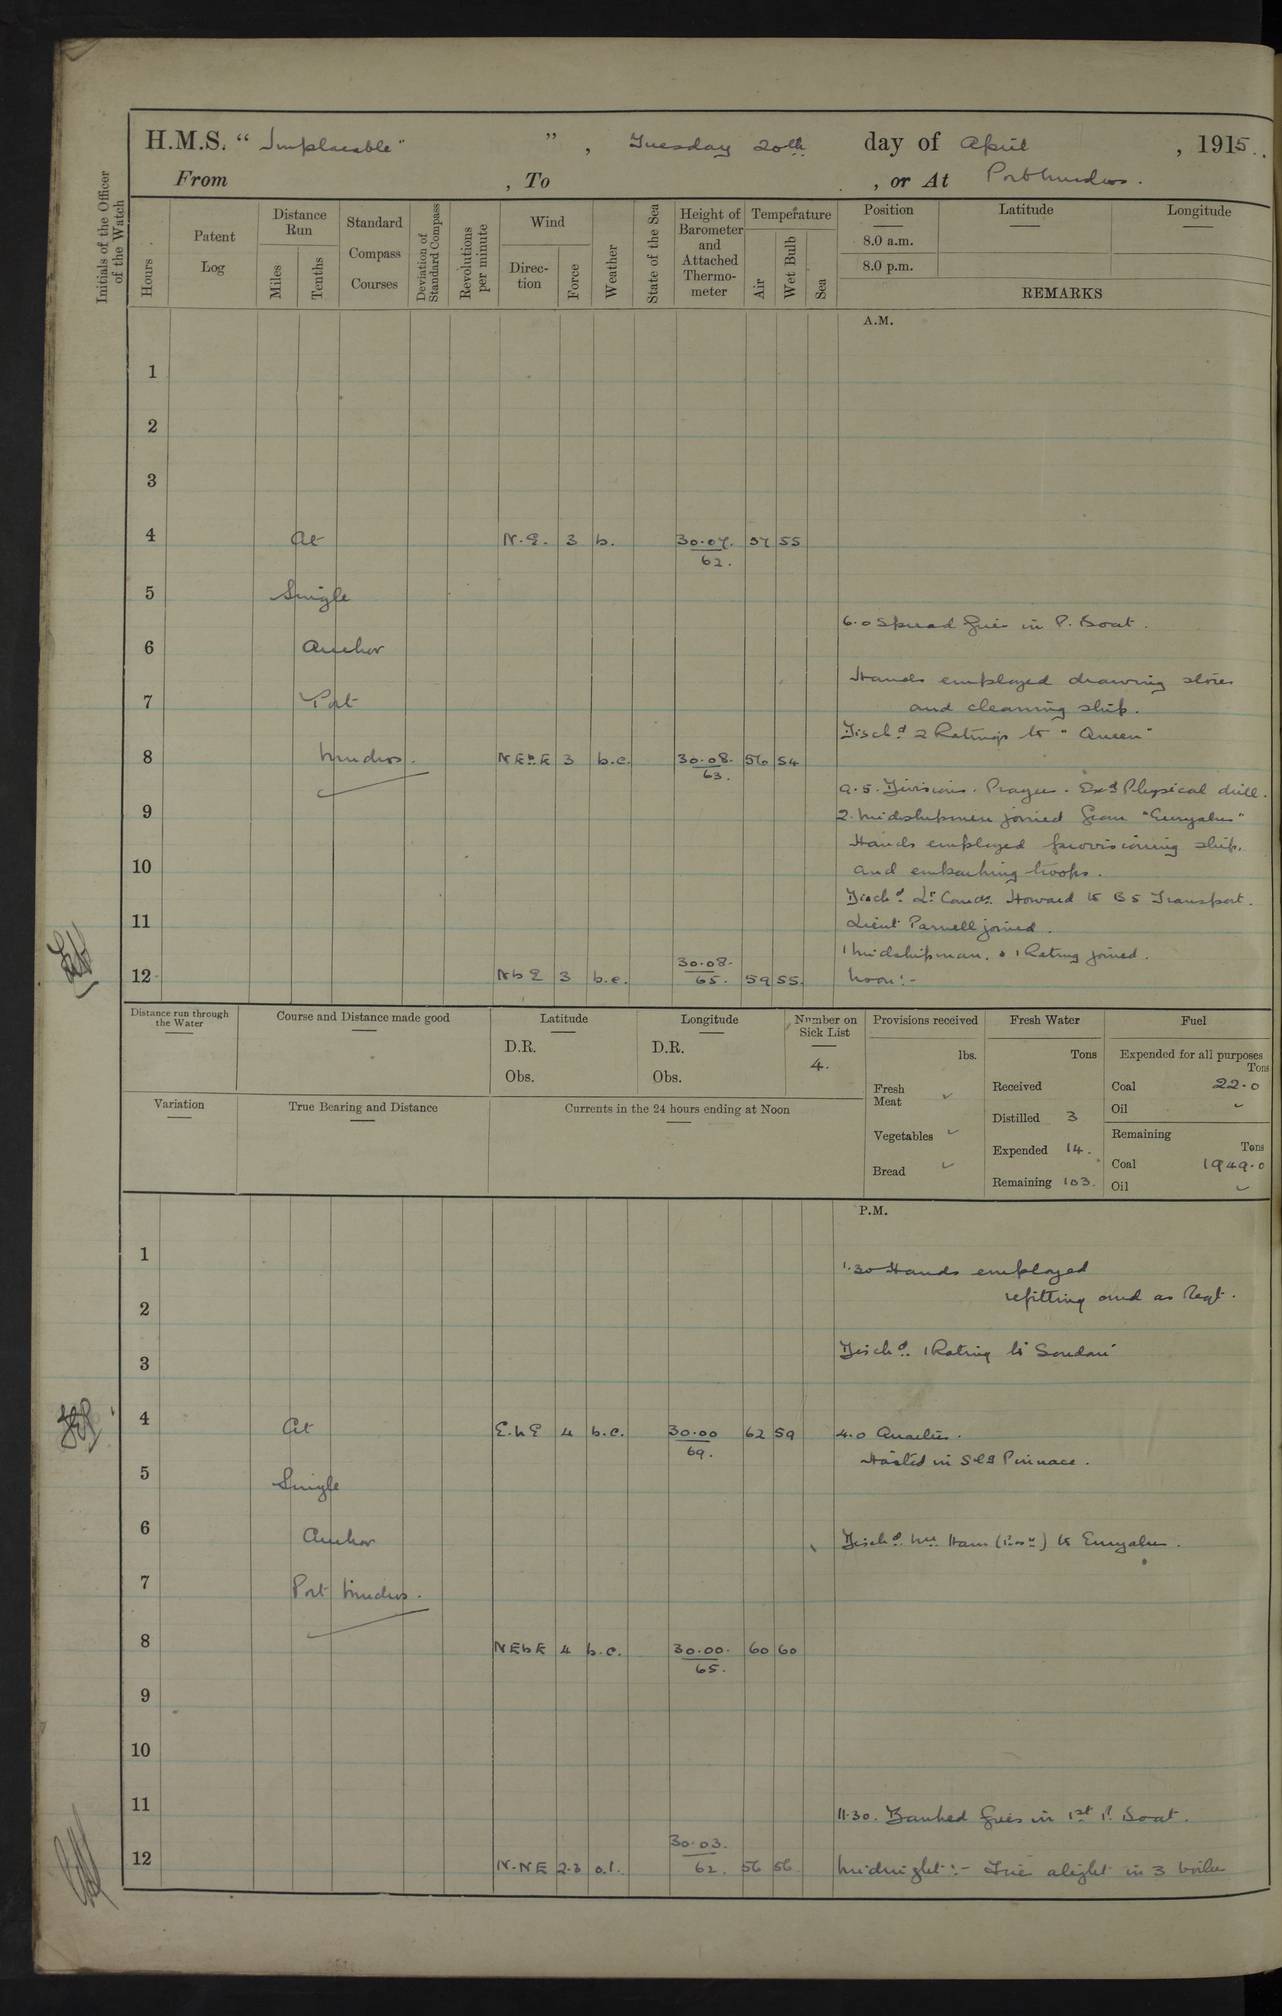 H.M.S. " Implacable " , Tuesday 20th day of April , 1915.
From , To , or At Port Mudros.
Initials of the Officer of the Watch
Hours
Patent Log
Distance Run
Miles
Tenths
Standard Compass Courses
Deviation of Standard Compass
Revolutions per minute
Wind
Direction
Force
Weather
State of the Sea
Height of Barometer and Attached Thermometer
Temperature
Air
Wet Bulb
Sea
Position
8.0 a.m.
8.0 p.m.
Latitude
Longitude
REMARKS
A.M.
1
2
3
4 At N.E. 3 b. 30.07. 57 55
62.
5 Single
6.0 Spread fires in P. Boat.
6 Anchor
Hands employed drawing stores
7 Port
and cleaning ship.
Disch.d 2 Ratings to "Queen"
8 Mudros. NEbE 3 b.c. 30.08. 56 54
63.
9.5. Divisions. Prayers. Ex.d Physical drill.
9 2. Midshipmen joined from "Euryalus"
Hands employed provisioning ship.
10 and embarking troops.
Disch.d Lt. Comdr. Howard to B5 Transport.
11 Lieut Parnell joined.
1 Midshipman. & 1 Rating joined.
12 NbE 3 b.c. 30.08. 59 55.
65.
Noon:-
Distance run through the Water
Course and Distance made good
Latitude
D.R.
Obs.
Longitude
D.R.
Obs.
Number on Sick List
4.
Provisions received
lbs.
Fresh Meat
Vegetables
Bread
Fresh Water
Tons
Received
Distilled 3
Expended 14.
Remaining 103.
Fuel
Expended for all purposes
Tons
Coal 22.0
Oil
Remaining
Tons
Coal 1949.0
Oil
Variation
True Bearing and Distance
Currents in the 24 hours ending at Noon
P.M.
1
1.30 Hands employed
2 refitting and as Reqt.
3 Disch.d. 1 Rating to Soudan
4 At E.bE 4 b.c. 30.00 62 59 4.0 Quarters.
69.
Hoisted in Slg Pinnace.
5 Single
6 Anchor
Disch.d. Mr. Ham to Euryalus.
7 Port Mudros.
8 NEbE 4 b.c. 30.00. 60 60
65.
9
10
11 11.30. Banked fires in 1st P. Boat.
12 N.NE 2.3 30.03. 56 56.
62.
Midnight:- Fires alight in 3 boilers